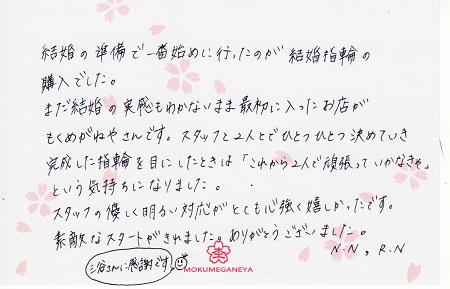 結婚の準備で一番始めに行ったのが結婚指輪の
購入でした。
まだ結婚の実感もわかないまま最初に入ったお店が
もくめがねやさんです。スタッフと2人とでひとつひとつ決めていき
完成した指輪を目にしたときは「これから2人で頑張っていかなきゃ」
という気持ちになりました。
スタッフの優しく明るい対応がとても心強く嬉しかったです。
素敵なスタートがきれました。ありがとうございました。
N.N, R.N
三谷さんに感謝です。
MOKUMEGANEYA